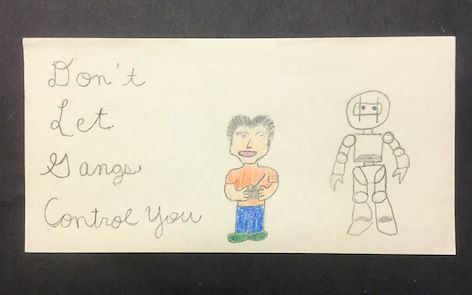 Don't
Let
Gangs
Control You